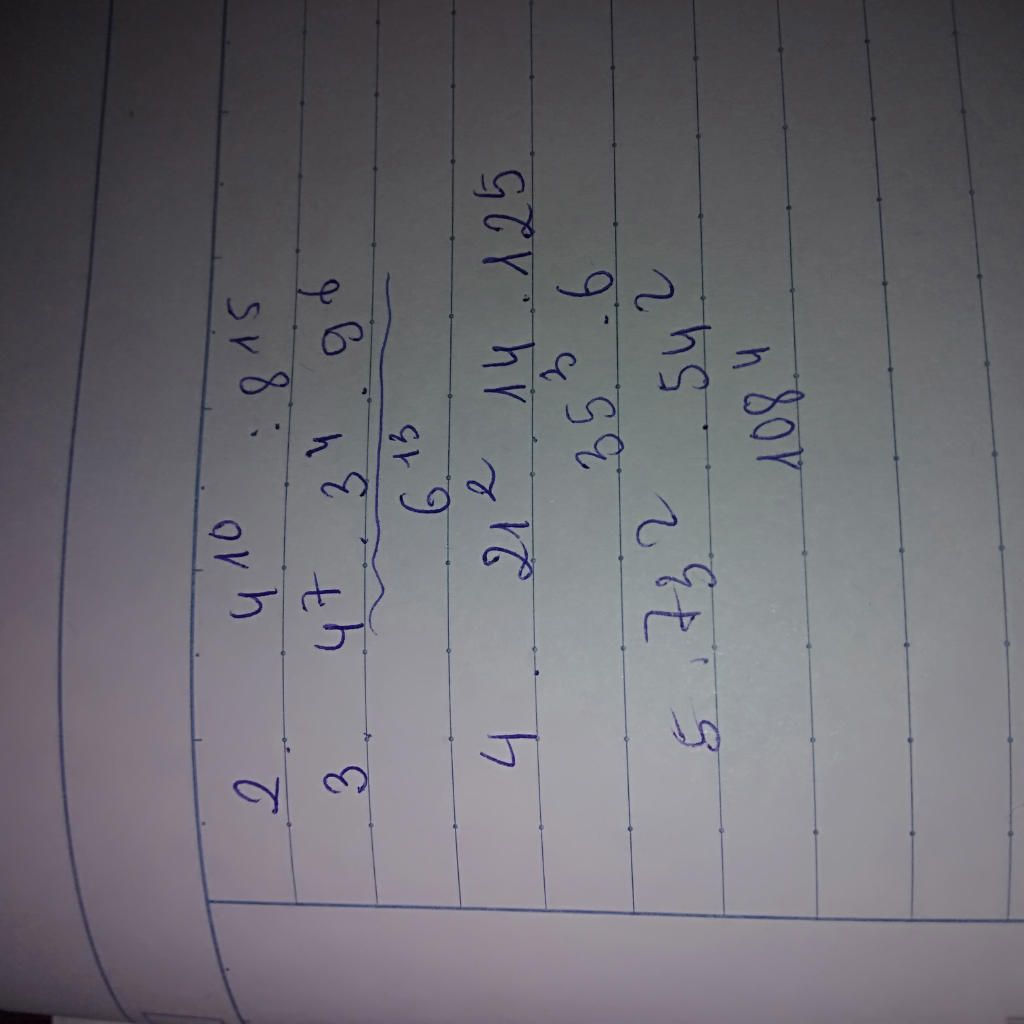 2. 4¹⁰ : 8¹⁵
3. 4⁷ . 3⁴ . 9⁶
6¹³
4. 21² . 14 . 125
35³ . 6
5. 73² . 54²
108⁴